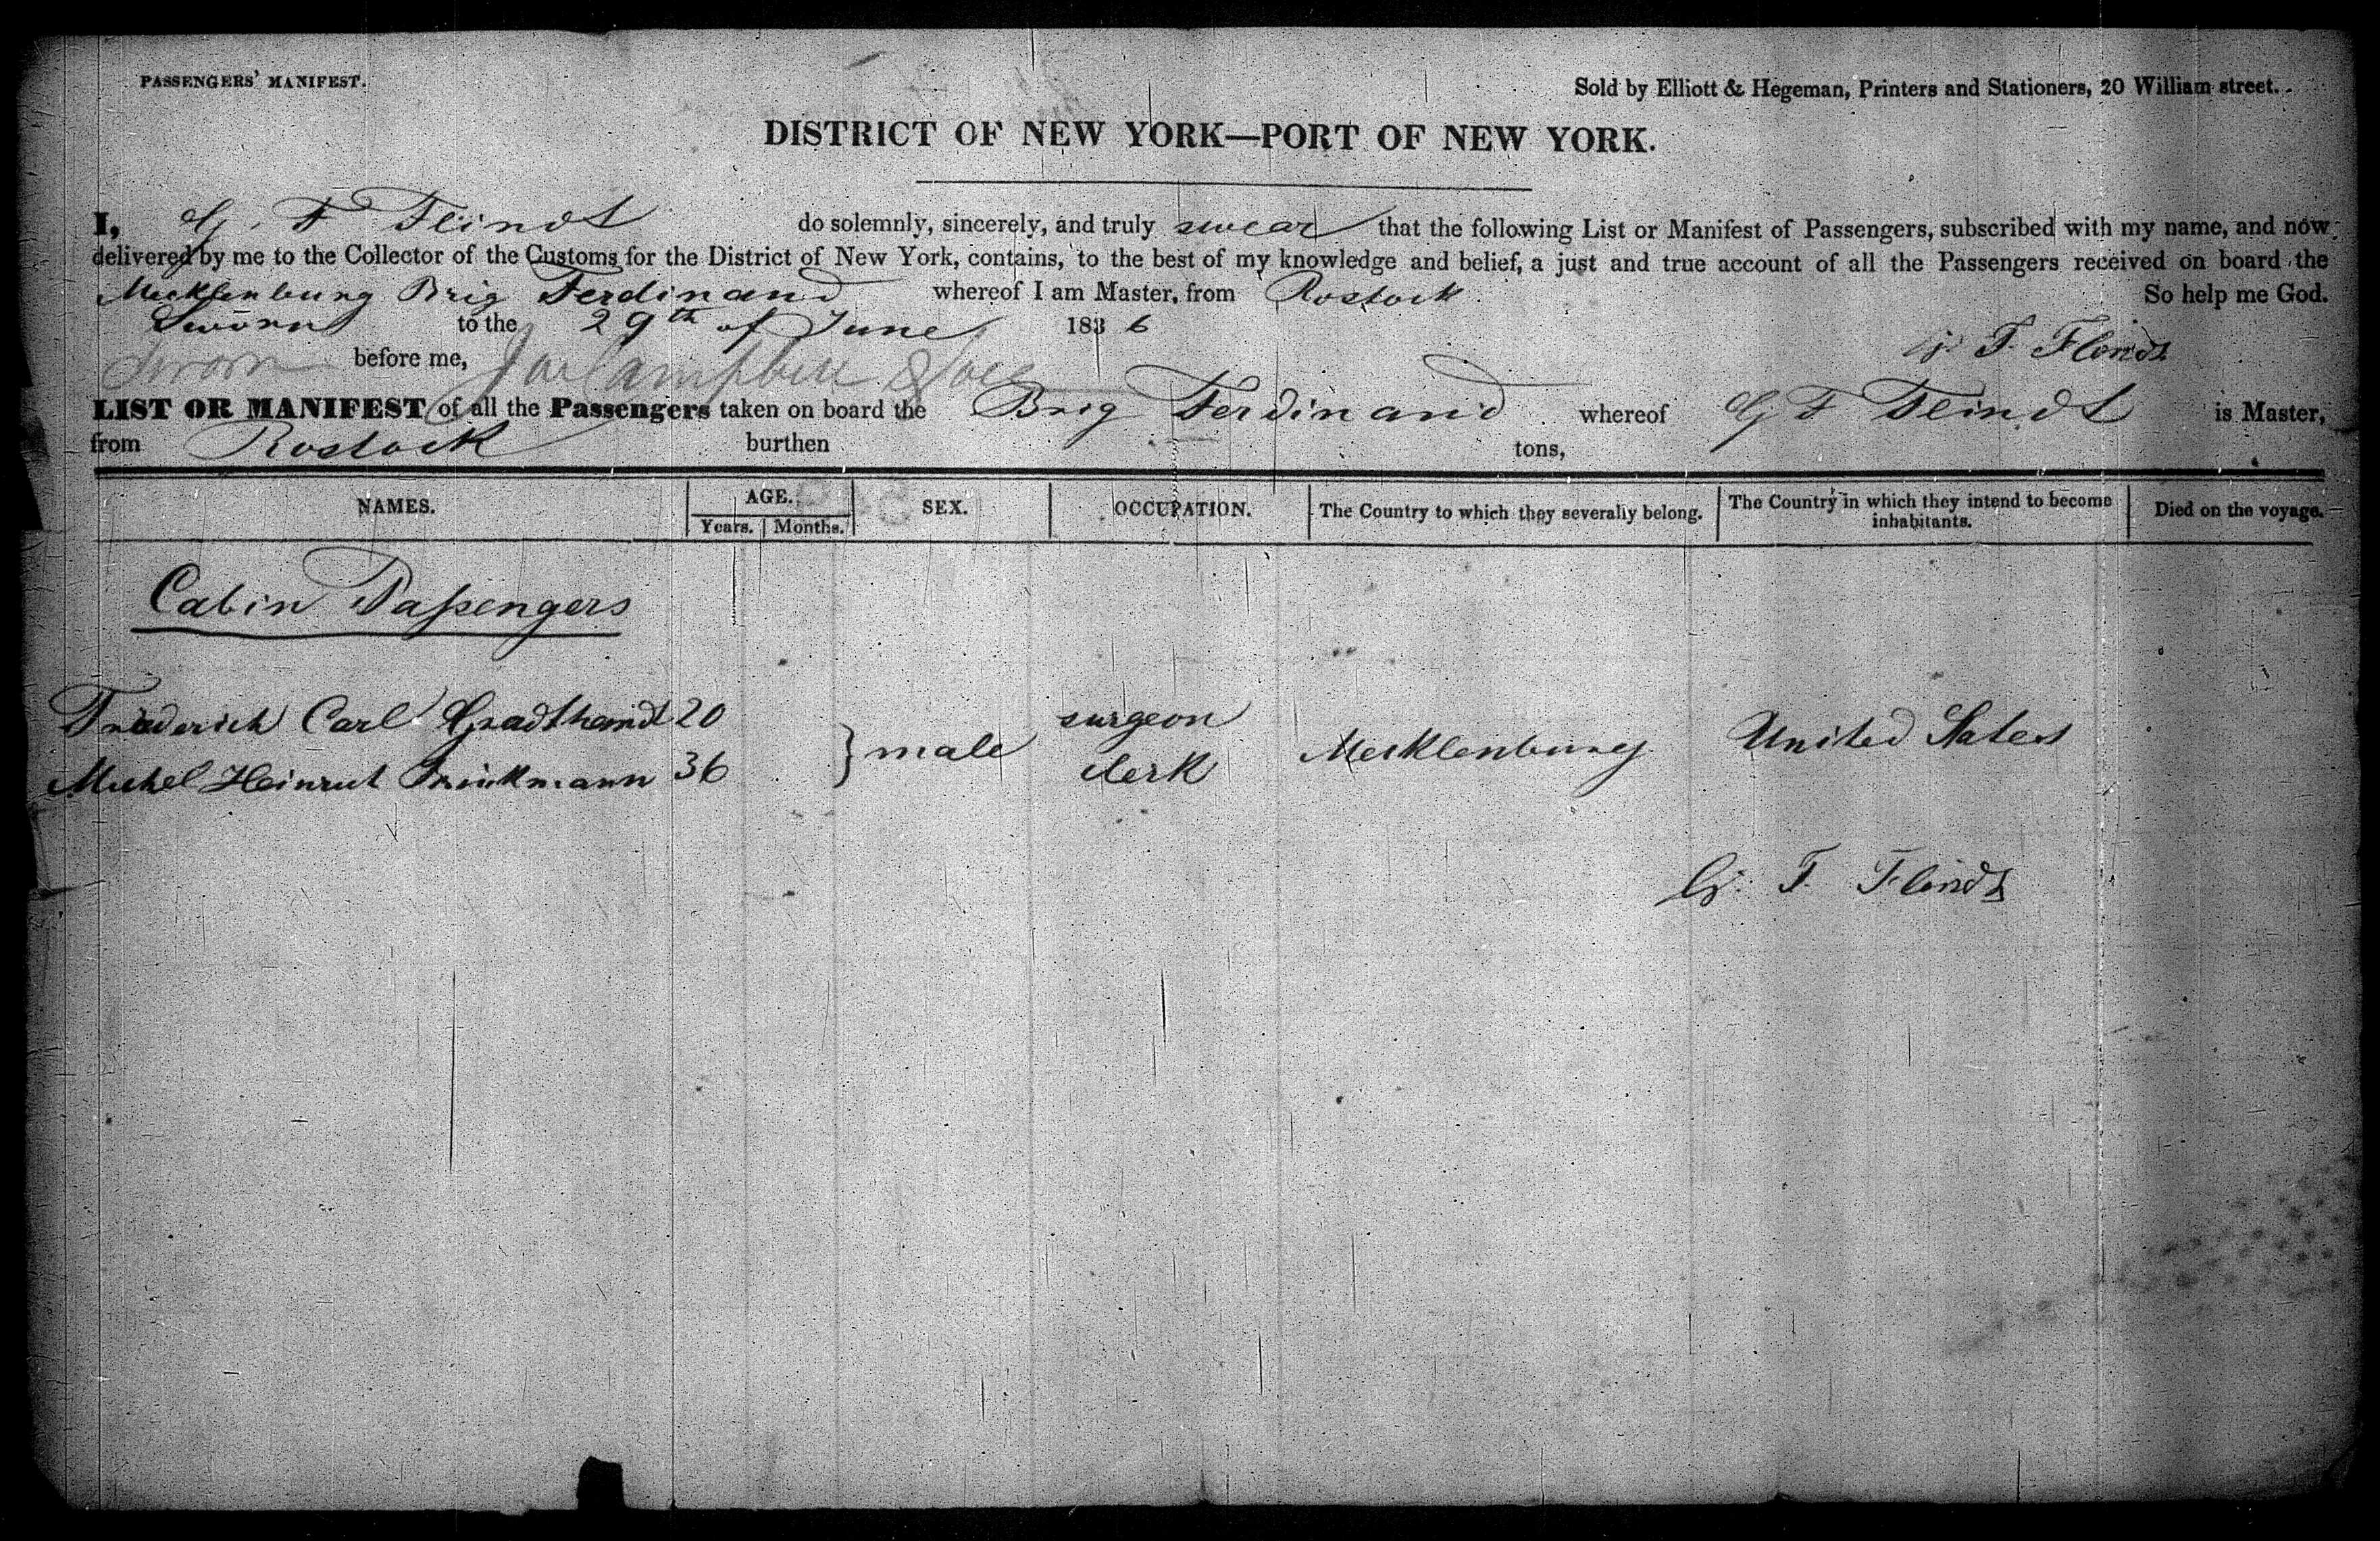 PASSENGERS' MANIFEST.
Sold by Elliott & Hegeman, Printers and Stationers, 20 William street.
DISTRICT OF NEW YORK—PORT OF NEW YORK.
I, G. F Flindt do solemnly, sincerely, and truly swear that the following List or Manifest of Passengers, subscribed with my name, and now
delivered by me to the Collector of the Customs for the District of New York, contains, to the best of my knowledge and belief, a just and true account of all the Passengers received on board the
Mecklenburg Brig Ferdinand whereof I am Master, from Rostock So help me God.
Sworn to the 29th of June 1836
G. F. Flindt
Sworn before me, Campbell
LIST OR MANIFEST of all the Passengers taken on board the Brig Ferdinand whereof G F Flindt is Master,
from Rostock burthen tons,
NAMES. AGE. SEX. OCCUPATION. The Country to which they severally belong. The Country in which they intend to become inhabitants. Died on the voyage.
Years. Months.
Cabin Passengers
Friederich Carl 20 surgeon
} male Mecklenburg United States
Michel Heinrich 36 clerk
G. F. Flindt